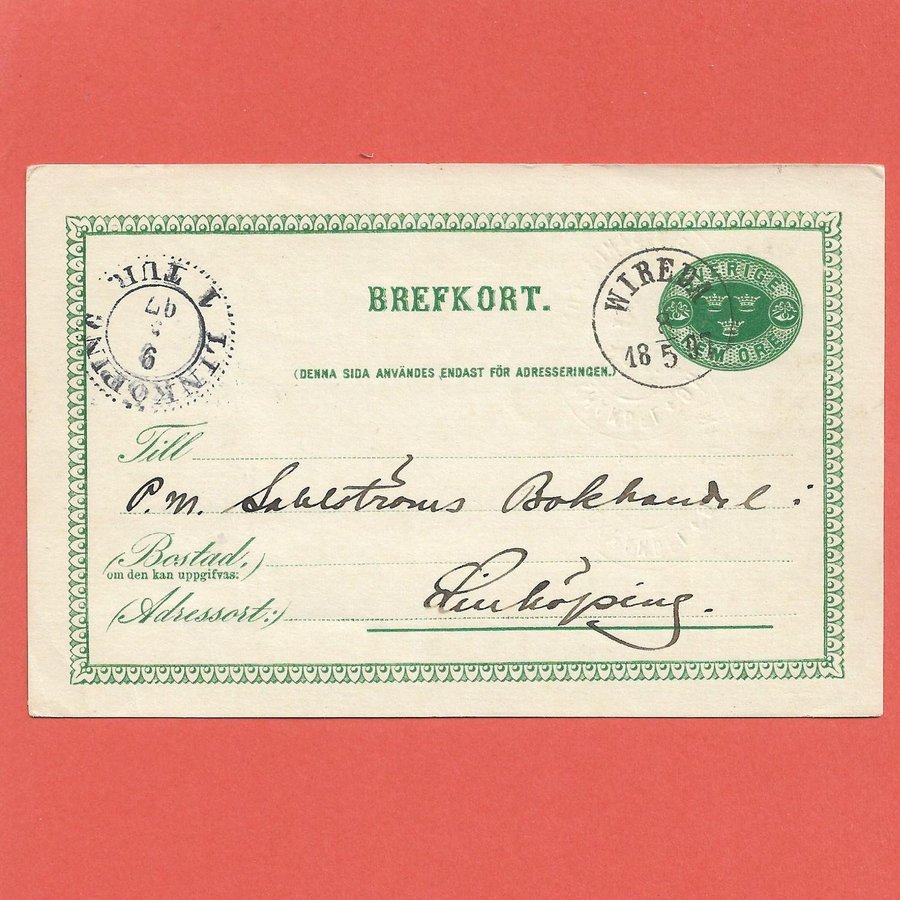 BREFKORT.
SVERIGE
FEM ÖRE
WIREDA
18 5
LINKÖPING
1 TUR
9
97
(DENNA SIDA ANVÄNDES ENDAST FÖR ADRESSERINGEN.)
Till
P. M. Sahlströms Bokhandel
(Bostad,)
om den kan uppgifvas:
(Adressort:)
Linköping.